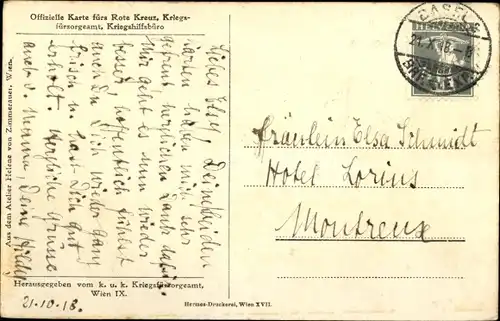 Offizielle Karte fürs Rote Kreuz, Kriegs-
fürsorgeamt, Kriegshilfsbüro
Liebes Elsy! Deine beiden
Karten haben mich sehr
gefreut, herzlichen Dank dafür.
Mir geht es nun wieder
besser, hoffentlich fühlst
auch Du Dich wieder ganz
frisch u. hast Dich gut
erholt. Herzliche Grüsse
auch v. Mamma, Deine
Aus dem Atelier Helene von Zimmerauer, Wien.
Herausgegeben vom k. u. k. Kriegsfürsorgeamt,
Wien IX.
21.10.18.
Hermes-Druckerei, Wien XVII.
BASEL
21.X.18.
HELVETIA
Fräulein Elsa Schmidt
Hotel Lorius
Montreux